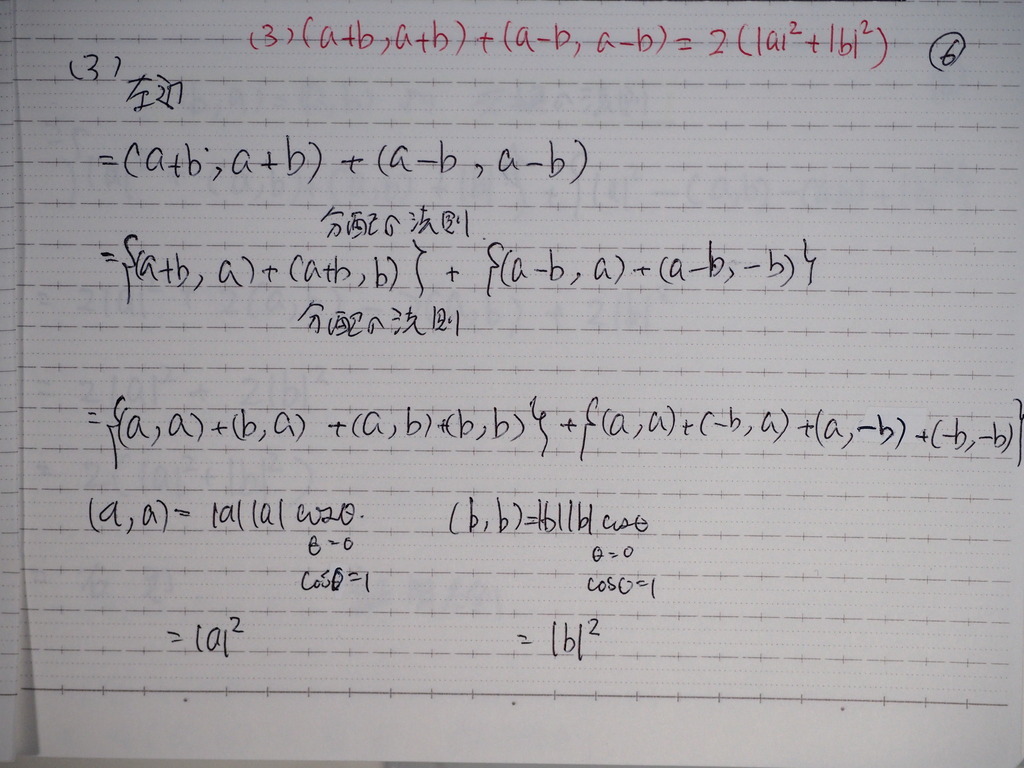 (3) (a+b, a+b) + (a-b, a-b) = 2(|a|²+|b|²) ⑥
(3)
左辺
= (a+b, a+b) + (a-b, a-b)
分配の法則
= {(a+b, a) + (a+b, b)} + {(a-b, a) + (a-b, -b)}
分配の法則
= {(a, a) + (b, a) + (a, b) + (b, b)} + {(a, a) + (-b, a) + (a, -b) + (-b, -b)}
(a, a) = |a||a| cosθ. (b, b) = |b||b| cosθ
θ=0 θ=0
cosθ=1 cosθ=1
= |a|² = |b|²